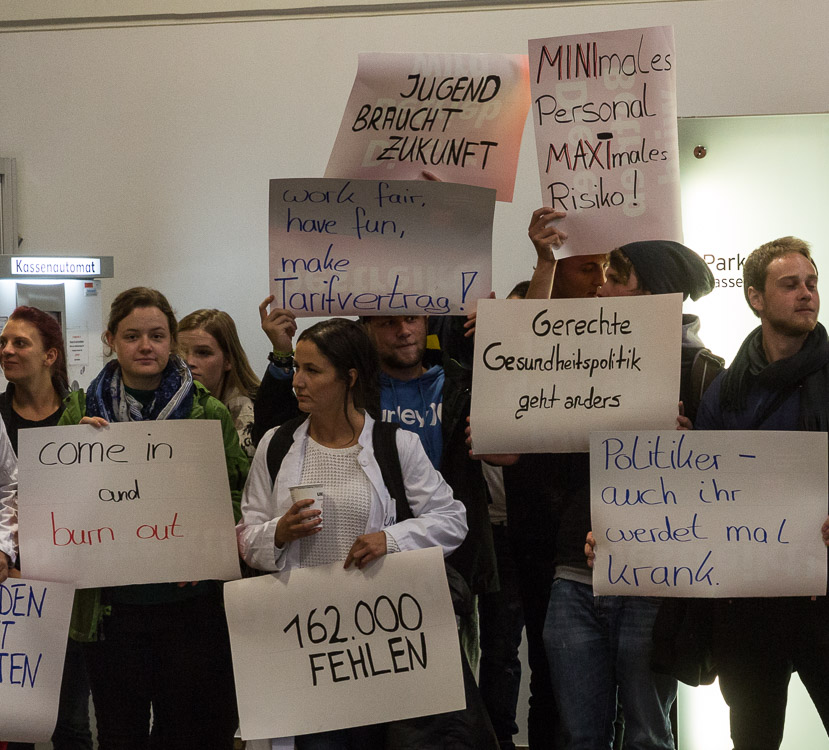 JUGEND
BRAUCHT
ZUKUNFT
MINImales
Personal
MAXImales
Risiko!
work fair,
have fun,
make
Tarifvertrag!
Kassenautomat
Park
Gerechte
Gesundheitspolitik
geht anders
come in
and
burn out
Politiker -
auch ihr
werdet mal
krank.
162.000
FEHLEN
DEN
T
TEN
urley